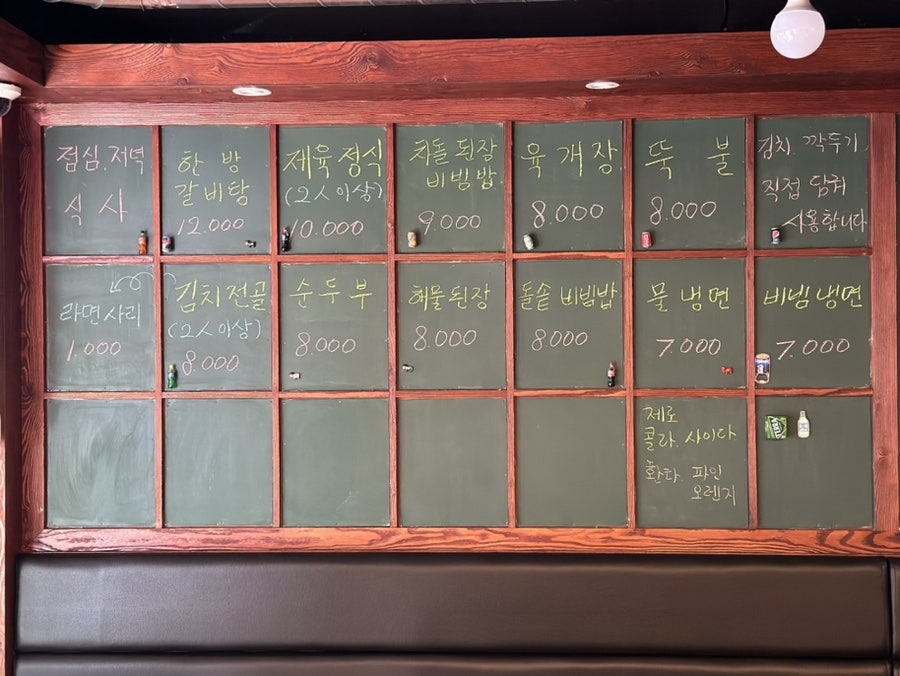 점심.저녁
식사
한방
갈비탕
12.000
제육정식
(2人이상)
10.000
차돌된장
비빔밥
9.000
육개장
8.000
뚝불
8.000
김치 깍두기
직접 담궈
사용합니다
라면사리
1.000
김치전골
(2人이상)
8.000
순두부
8.000
해물된장
8.000
돌솥 비빔밥
8.000
물냉면
7.000
비빔냉면
7.000
제로
콜라. 사이다
환타. 파인
오렌지